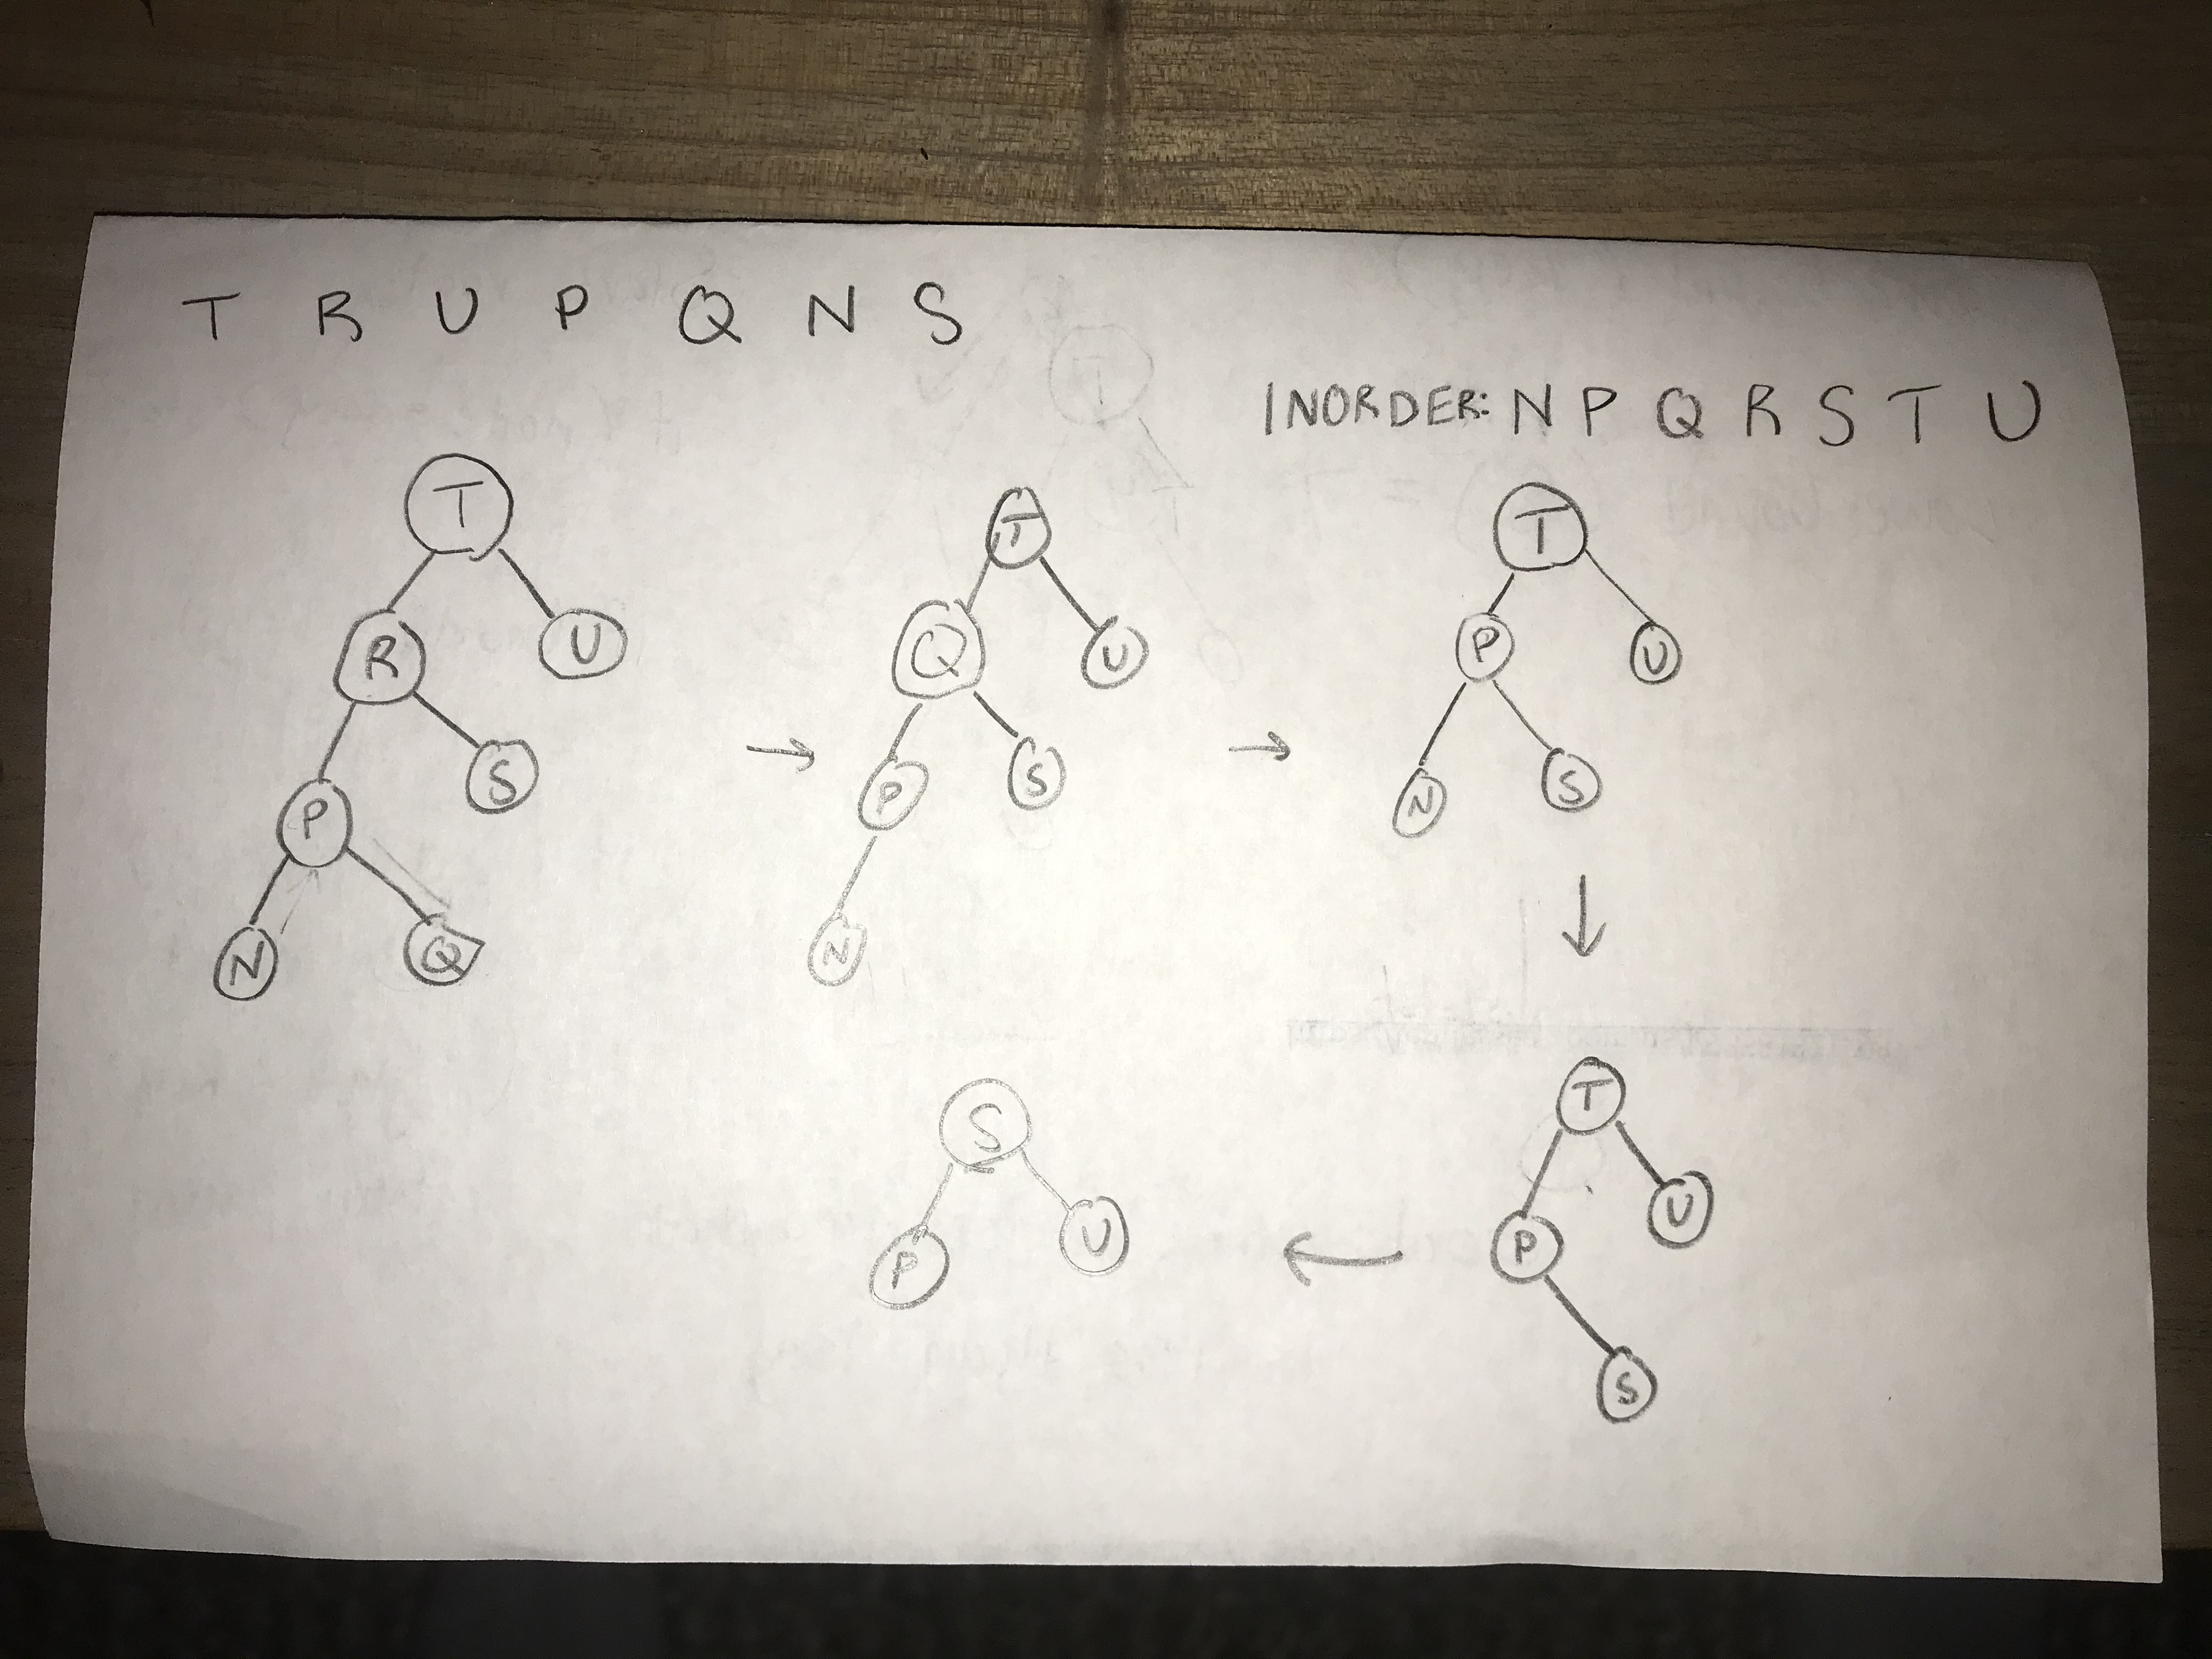 T R U P Q N S
INORDER: N P Q R S T U
T
R U
P S
N Q
T
Q U
P S
N
T
P U
N S
T
P U
S
S
P U